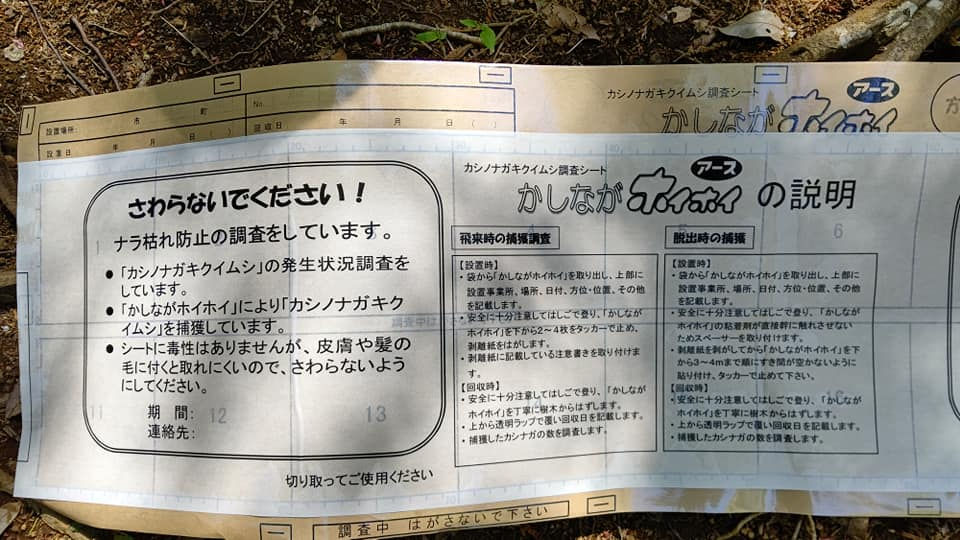 設置場所: 市 町
設置日 年 月 日( )
No.
回収日 年 月 日( )
カシノナガキクイムシ調査シート
かしなが ホイホイ
アース
方
さわらないでください!
ナラ枯れ防止の調査をしています。
●「カシノナガキクイムシ」の発生状況調査を
しています。
●「かしながホイホイ」により「カシノナガキク
イムシ」を捕獲しています。
● シートに毒性はありませんが、皮膚や髪の
毛に付くと取れにくいので、さわらないよう
にしてください。
期 間:
連絡先:
切り取ってご使用ください
カシノナガキクイムシ調査シート
アース
かしなが ホイホイ の説明
飛来時の捕獲調査
【設置時】
・袋から「かしながホイホイ」を取り出し、上部に
設置事業所、場所、日付、方位・位置、その他
を記載します。
・安全に十分注意してはしごで登り、「かしなが
ホイホイ」を下から2~4枚をタッカーで止め、
剥離紙をはがします。
・剥離紙に記載している注意書きを取り付けま
す。
【回収時】
・安全に十分注意してはしごで登り、「かしなが
ホイホイ」を丁寧に樹木からはずします。
・上から透明ラップで覆い回収日を記載します。
・捕獲したカシナガの数を調査します。
脱出時の捕獲
【設置時】
・袋から「かしながホイホイ」を取り出し、上部に
設置事業所、場所、日付、方位・位置、その他
を記載します。
・安全に十分注意してはしごで登り、「かしなが
ホイホイ」の粘着剤が直接幹に触れさせない
ためスペーサーを取り付けます。
・剥離紙を剥がしてから「かしながホイホイ」を下
から3~4mまで順にすき間が空かないように
貼り付け、タッカーで止めて下さい。
【回収時】
・安全に十分注意してはしごで登り、「かしなが
ホイホイ」を丁寧に樹木からはずします。
・上から透明ラップで覆い回収日を記載します。
・捕獲したカシナガの数を調査します。
調査中 はがさないで下さい